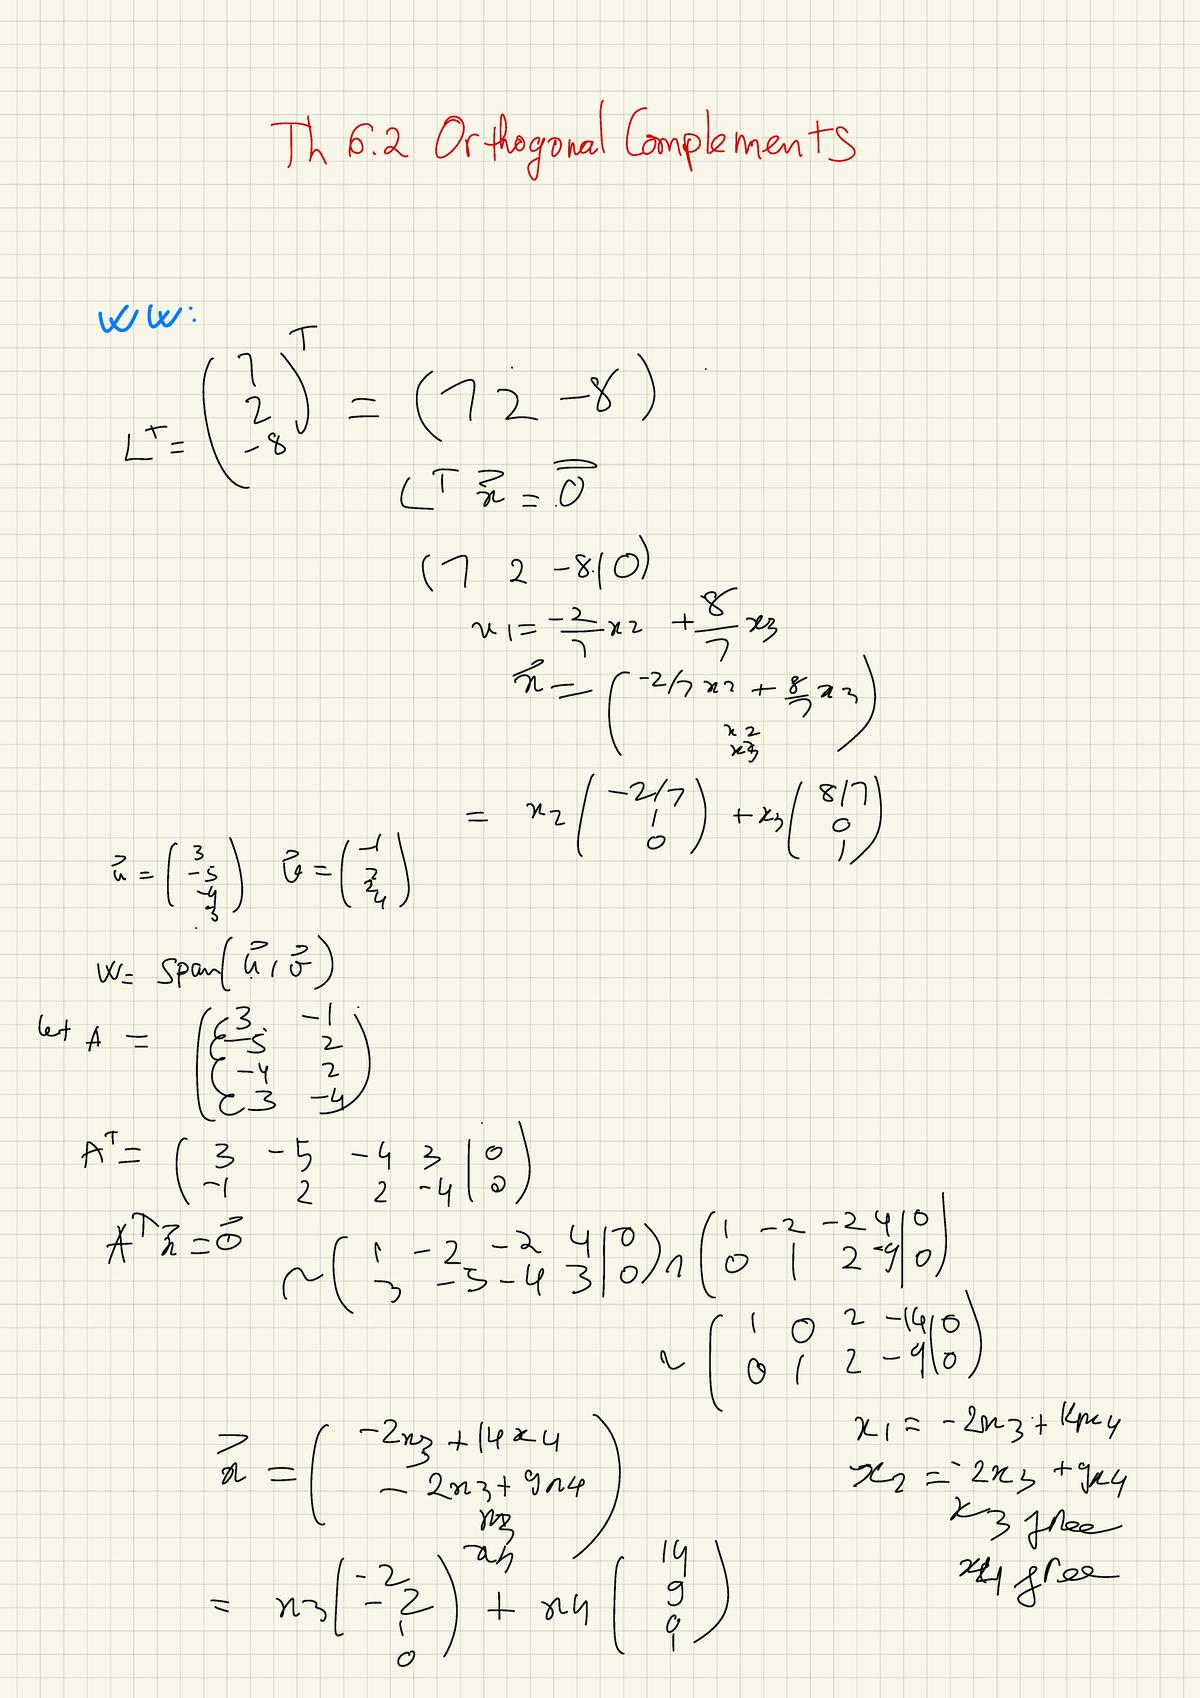 Th 6.2 Orthogonal Complements
WW:
L^T = (7 2 -8)^T = (7 2 -8)
L^T x⃗ = 0⃗
(7 2 -8 | 0)
x1 = -2/7 x2 + 8/7 x3
x⃗ = (-2/7 x2 + 8/7 x3
x2
x3)
= x2 (-2/7 1 0) + x3 (8/7 0 1)
u⃗ = (3 -5 -4 3) v⃗ = (-1 2 2 4)
W = span(u⃗, v⃗)
let A = (3 -1
-5 2
-4 2
3 -4)
A^T = (3 -5 -4 3 | 0
-1 2 2 -4 | 0)
A^T x⃗ = 0⃗
~ (1 -2 -2 4 | 0
3 -5 -4 3 | 0) ~ (1 -2 -2 4 | 0
0 1 2 -9 | 0)
~ (1 0 2 -14 | 0
0 1 2 -9 | 0)
x1 = -2x3 + 14x4
x2 = -2x3 + 9x4
x3 free
x4 free
x⃗ = (-2x3 + 14x4
-2x3 + 9x4
x3
x4)
= x3 (-2 -2 1 0) + x4 (14 9 0 1)